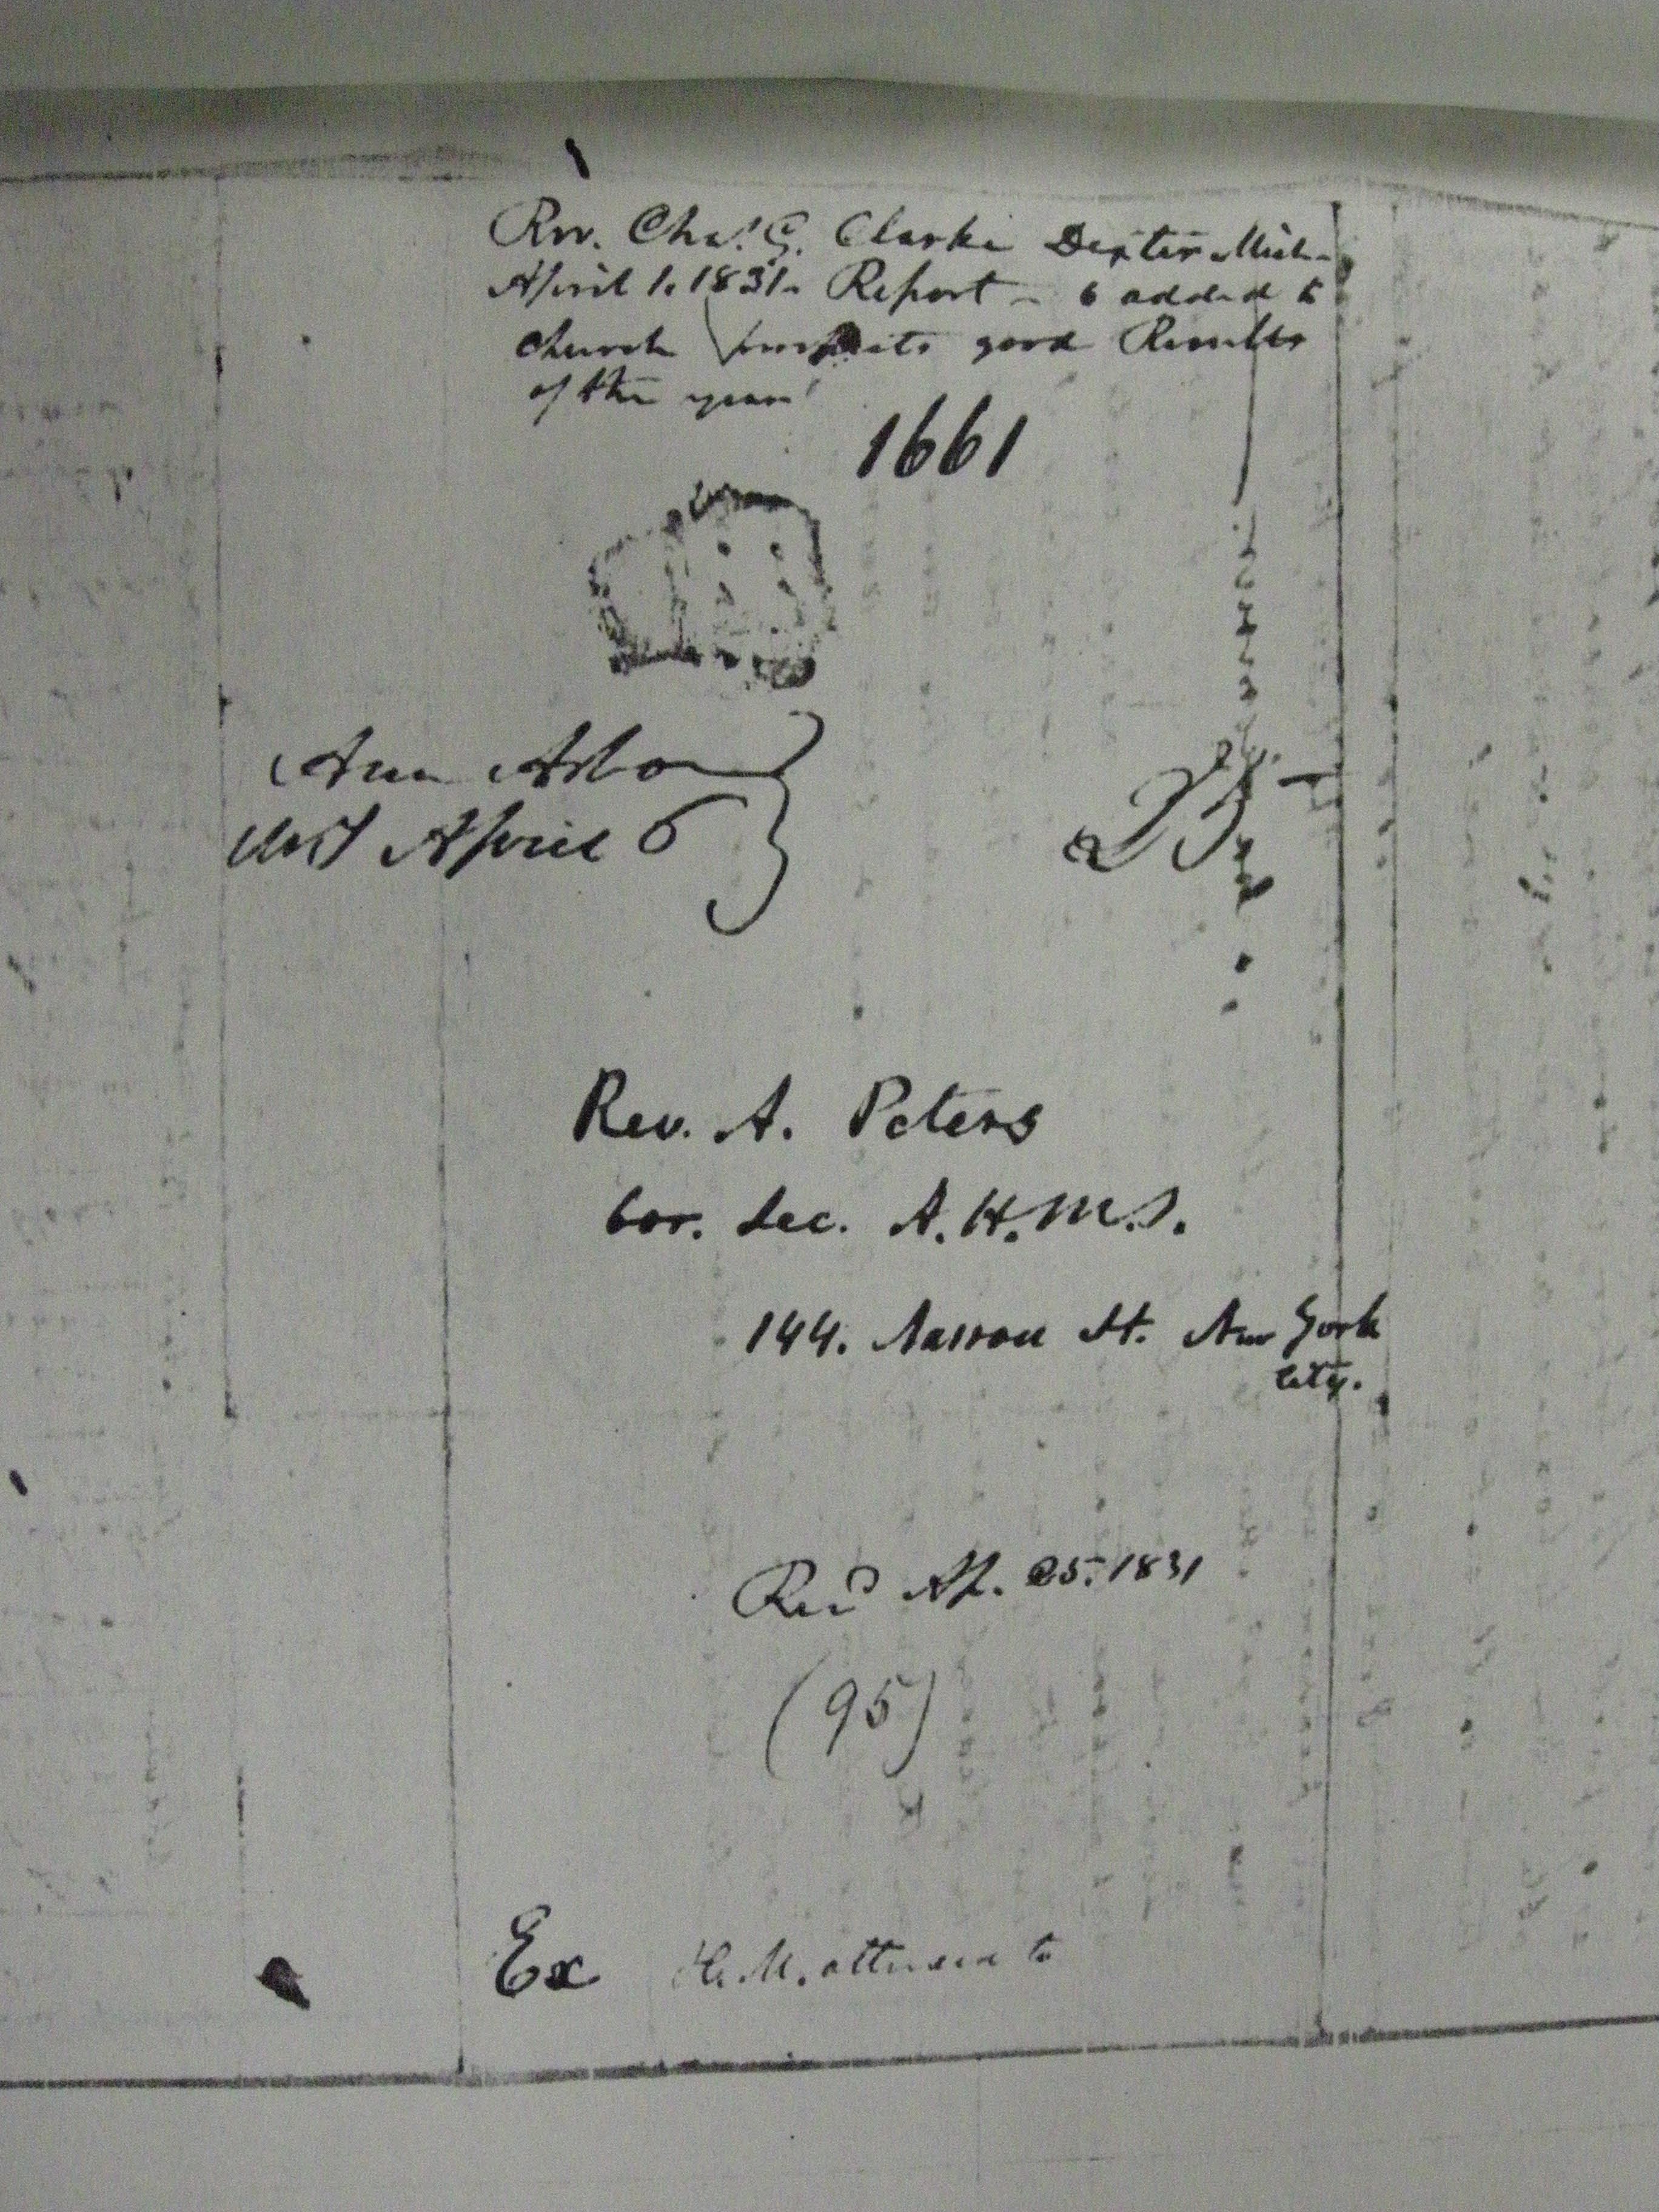 Rev. Chas. G. Clarke Dexter Mich.
April 1. 1831. Report - 6 added to
church prospects good Results
of the year
1661
Ann Arbor
April 6
Rev. A. Peters
Cor. Sec. A.H.M.S.
144. Nassau St. New York
City.
Recd Ap. 25. 1831
(95)
Ex H.M. attened to